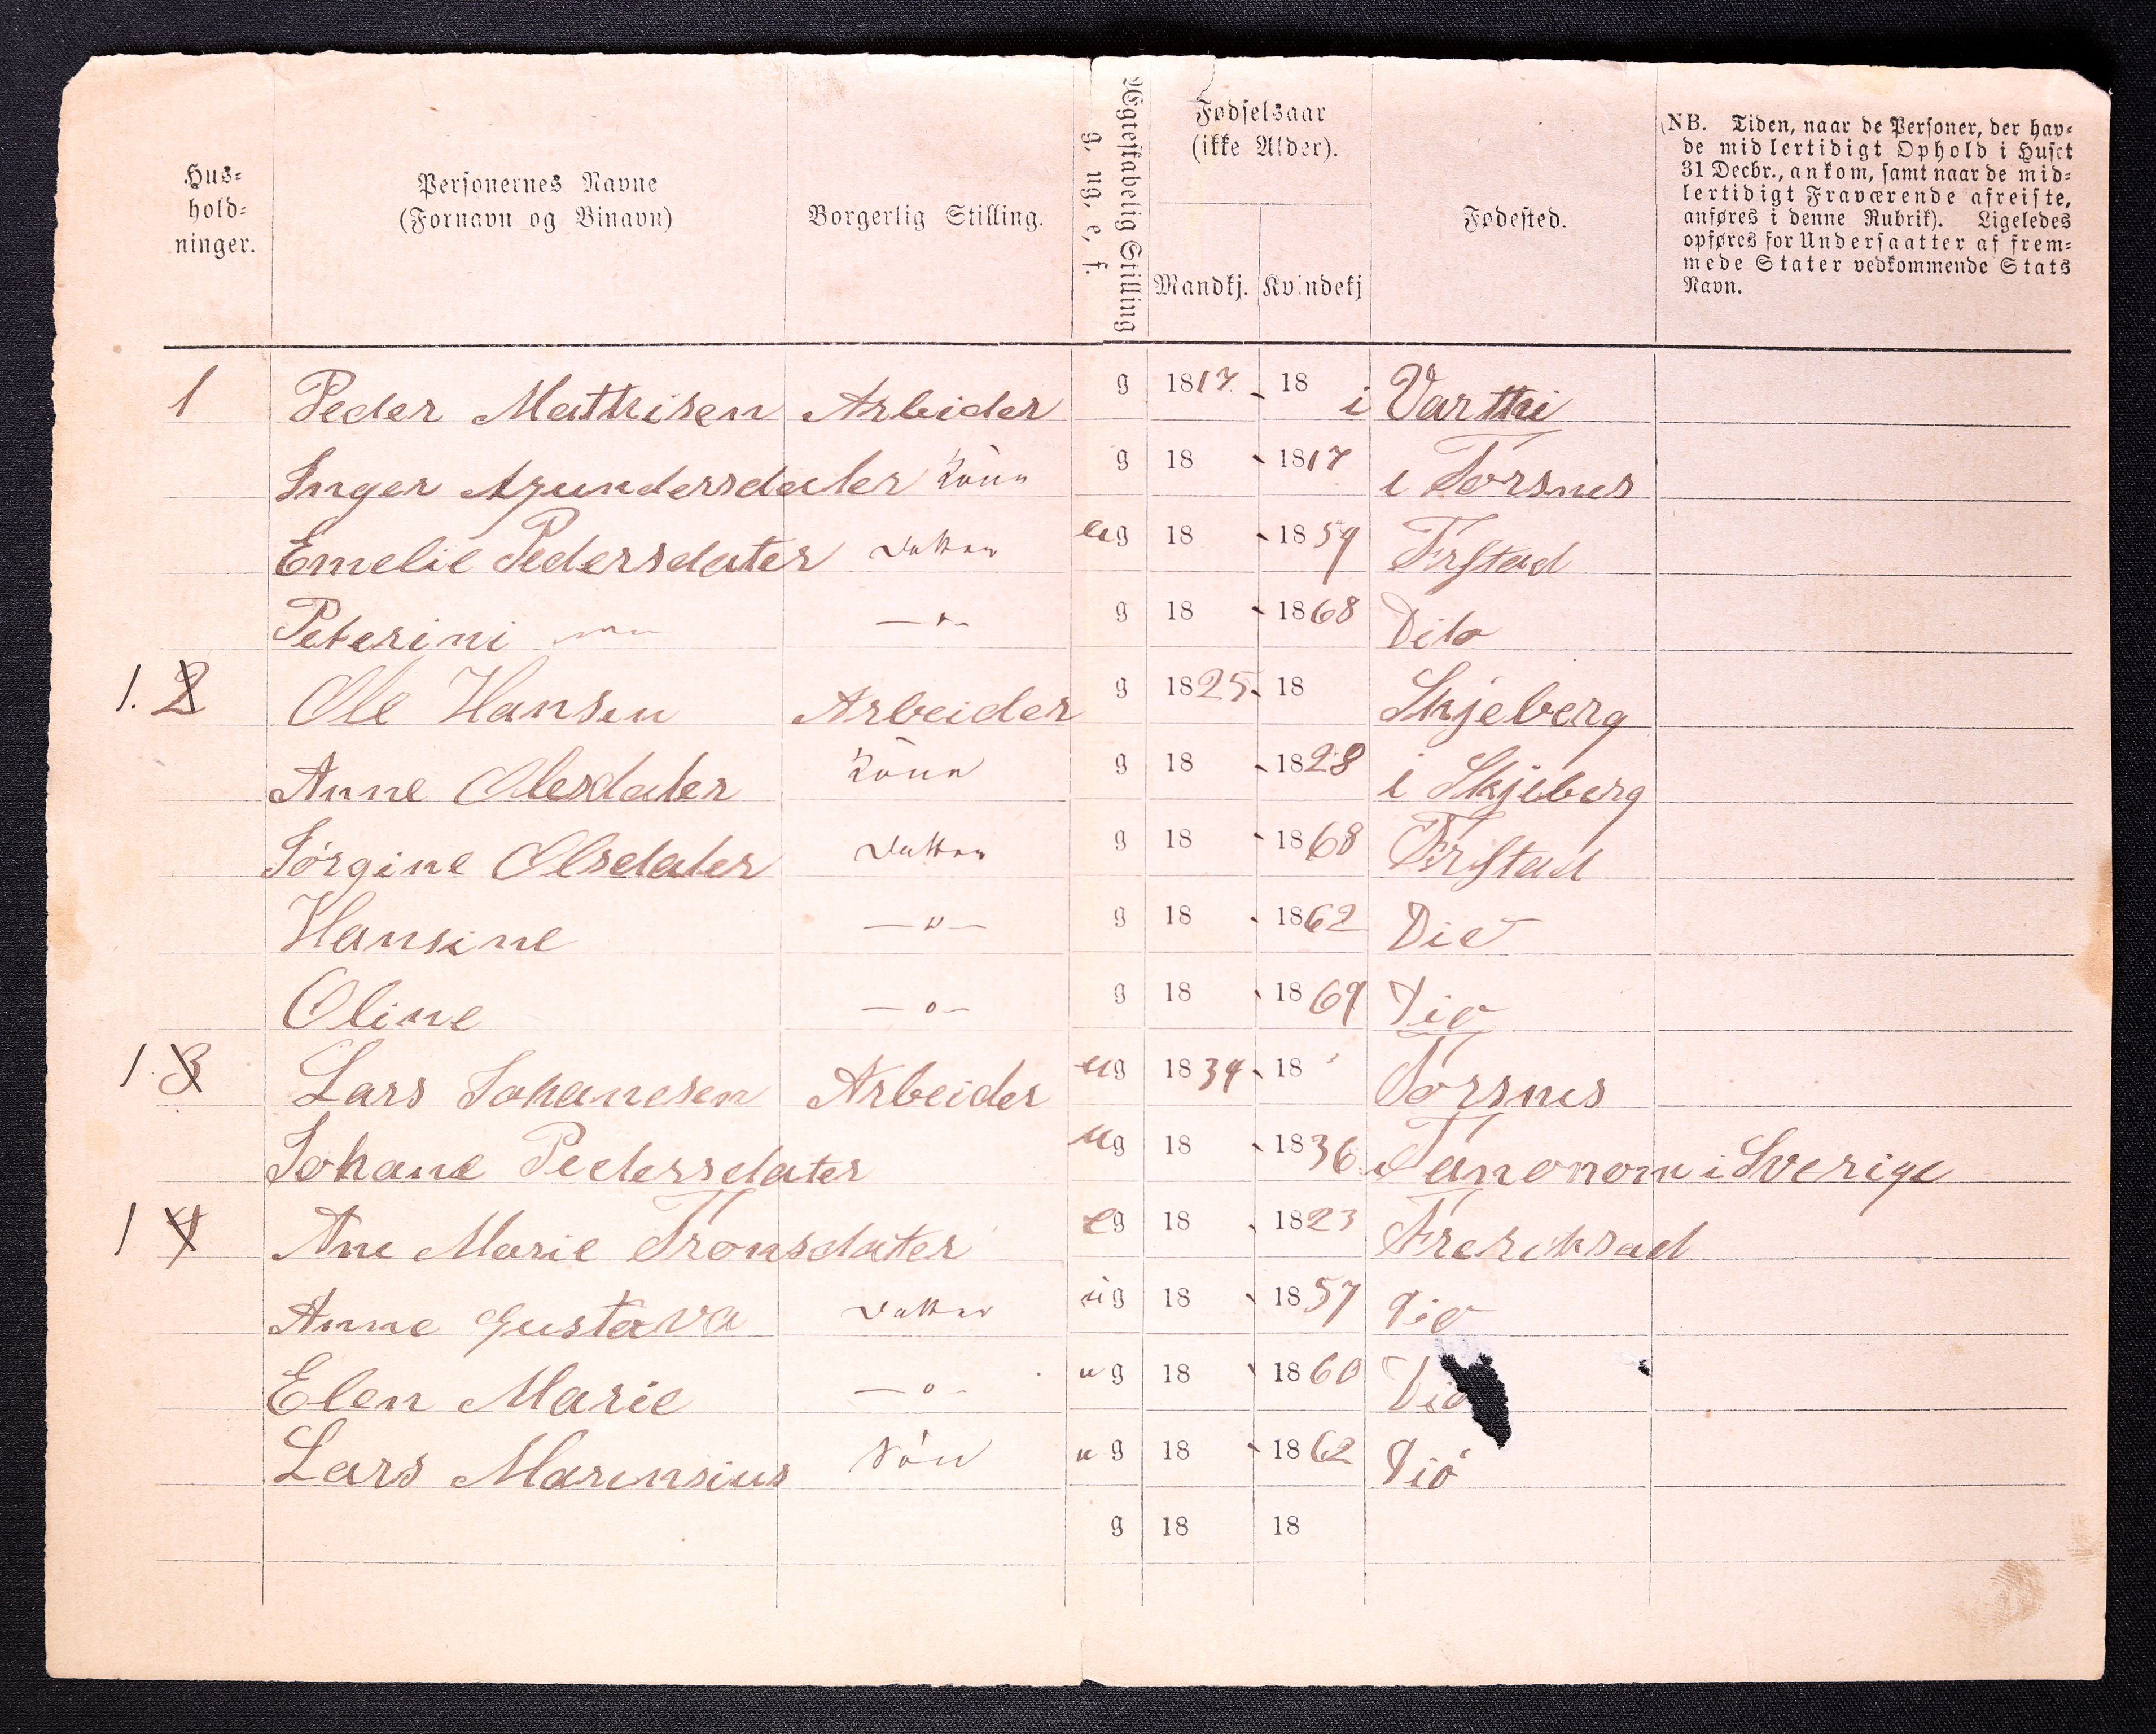 Hus-
hold-
ninger.
Personernes Navne
(Fornavn og Binavn)
Borgerlig Stilling.
Ægteskabelig Stilling
g, ug, e, f.
Fødselsaar
(ikke Alder).
Mandkj. Kvindekj
Fødested.
(NB. Tiden, naar de Personer, der hav-
de midlertidigt Ophold i Huset
31 Decbr., ankom, samt naar de mid-
lertidigt Fraværende afreiste,
anføres i denne Rubrik). Ligeledes
opføres for Undersaatter af frem-
mede Stater vedkommende Stats
Navn.
1 Peder Mathisen Arbeider g 1817 - 18 i Varthi
Inger Azundersdater Kone g 18 - 1817 i Torsnes
Emelie Pedersdater Datter ug 18 - 1859 Frstad
Peterini — — " — g 18 - 1868 Dito
1. 2 Ole Hansen Arbeider g 1825 - 18 Skjeberg
Anne Olesdater Kone g 18 - 1828 i Skjeberg
Jørgine Olsdater Datter g 18 - 1868 Frstad
Hansine — " — g 18 - 1862 Dio
Oline — " — g 18 - 1869 Dio
1. 3 Lars Johanesen Arbeider ug 1834 - 18 Torsnes
Johane Pedersdater ug 18 - 1836 i Tanonom i Sverige
1 4 Ane Marie Tronsdater eg 18 - 1823 Frederiksad
Anne Gustava Datter ug 18 - 1857 Dio
Elen Marie — " — ug 18 - 1860 Dio
Lars Marensius Søn ug 18 - 1862 Dio
g 18 18